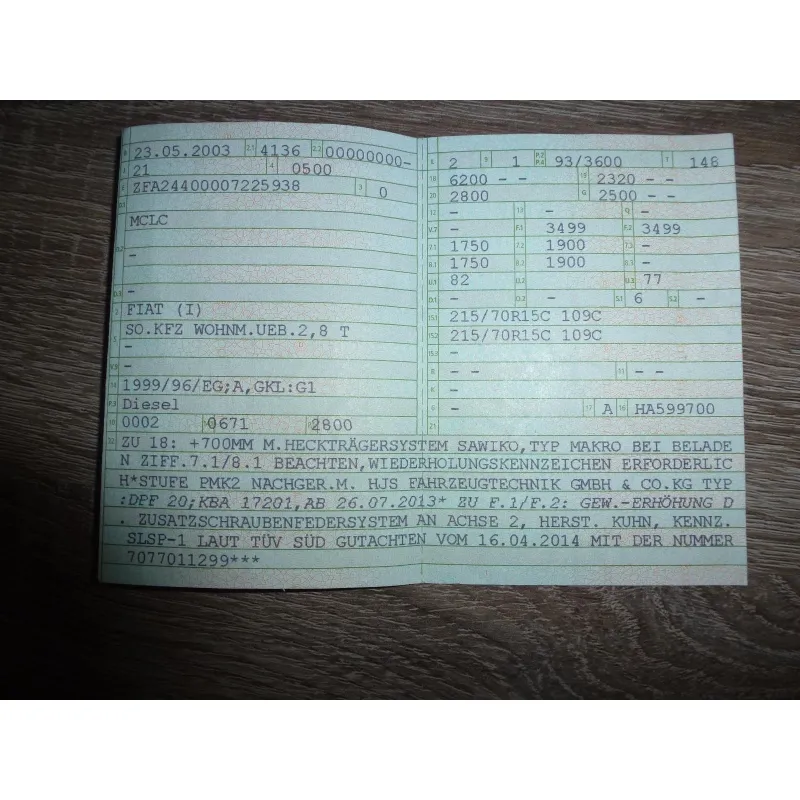 B 23.05.2003 2.1 4136 2.2 00000000-
J 21 4 0500
E ZFA24400007225938 3 0
D.1
MCLC
D.2 -
-
D.3 -
2 FIAT (I)
5 SO.KFZ WOHNM.UEB.2,8 T
-
V.9 -
14 1999/96/EG;A,GKL:G1
P.3 Diesel
10 0002 14.1 0671 P.1 2800
L 2 9 1 P.2 P.4 93/3600 T 148
18 6200 - - 19 2320 - -
20 2800 G 2500 - -
12 - 13 - Q -
V.7 - F.1 3499 F.2 3499
7.1 1750 7.2 1900 7.3 -
8.1 1750 8.2 1900 8.3 -
U.1 82 U.2 U.3 77
O.1 - O.2 - S.1 6 S.2 -
15.1 215/70R15C 109C
15.2 215/70R15C 109C
15.3 -
R - - 11 - -
K -
6 - 17 A 16 HA599700
21
22 ZU 18: +700MM M.HECKTRÄGERSYSTEM SAWIKO,TYP MAKRO BEI BELADE
N ZIFF.7.1/8.1 BEACHTEN,WIEDERHOLUNGSKENNZEICHEN ERFORDERLIC
H*STUFE PMK2 NACHGER.M. HJS FAHRZEUGTECHNIK GMBH & CO.KG TYP
:DPF 20;KBA 17201,AB 26.07.2013* ZU F.1/F.2: GEW.-ERHÖHUNG D
. ZUSATZSCHRAUBENFEDERSYSTEM AN ACHSE 2, HERST. KUHN, KENNZ.
SLSP-1 LAUT TÜV SÜD GUTACHTEN VOM 16.04.2014 MIT DER NUMMER
7077011299***